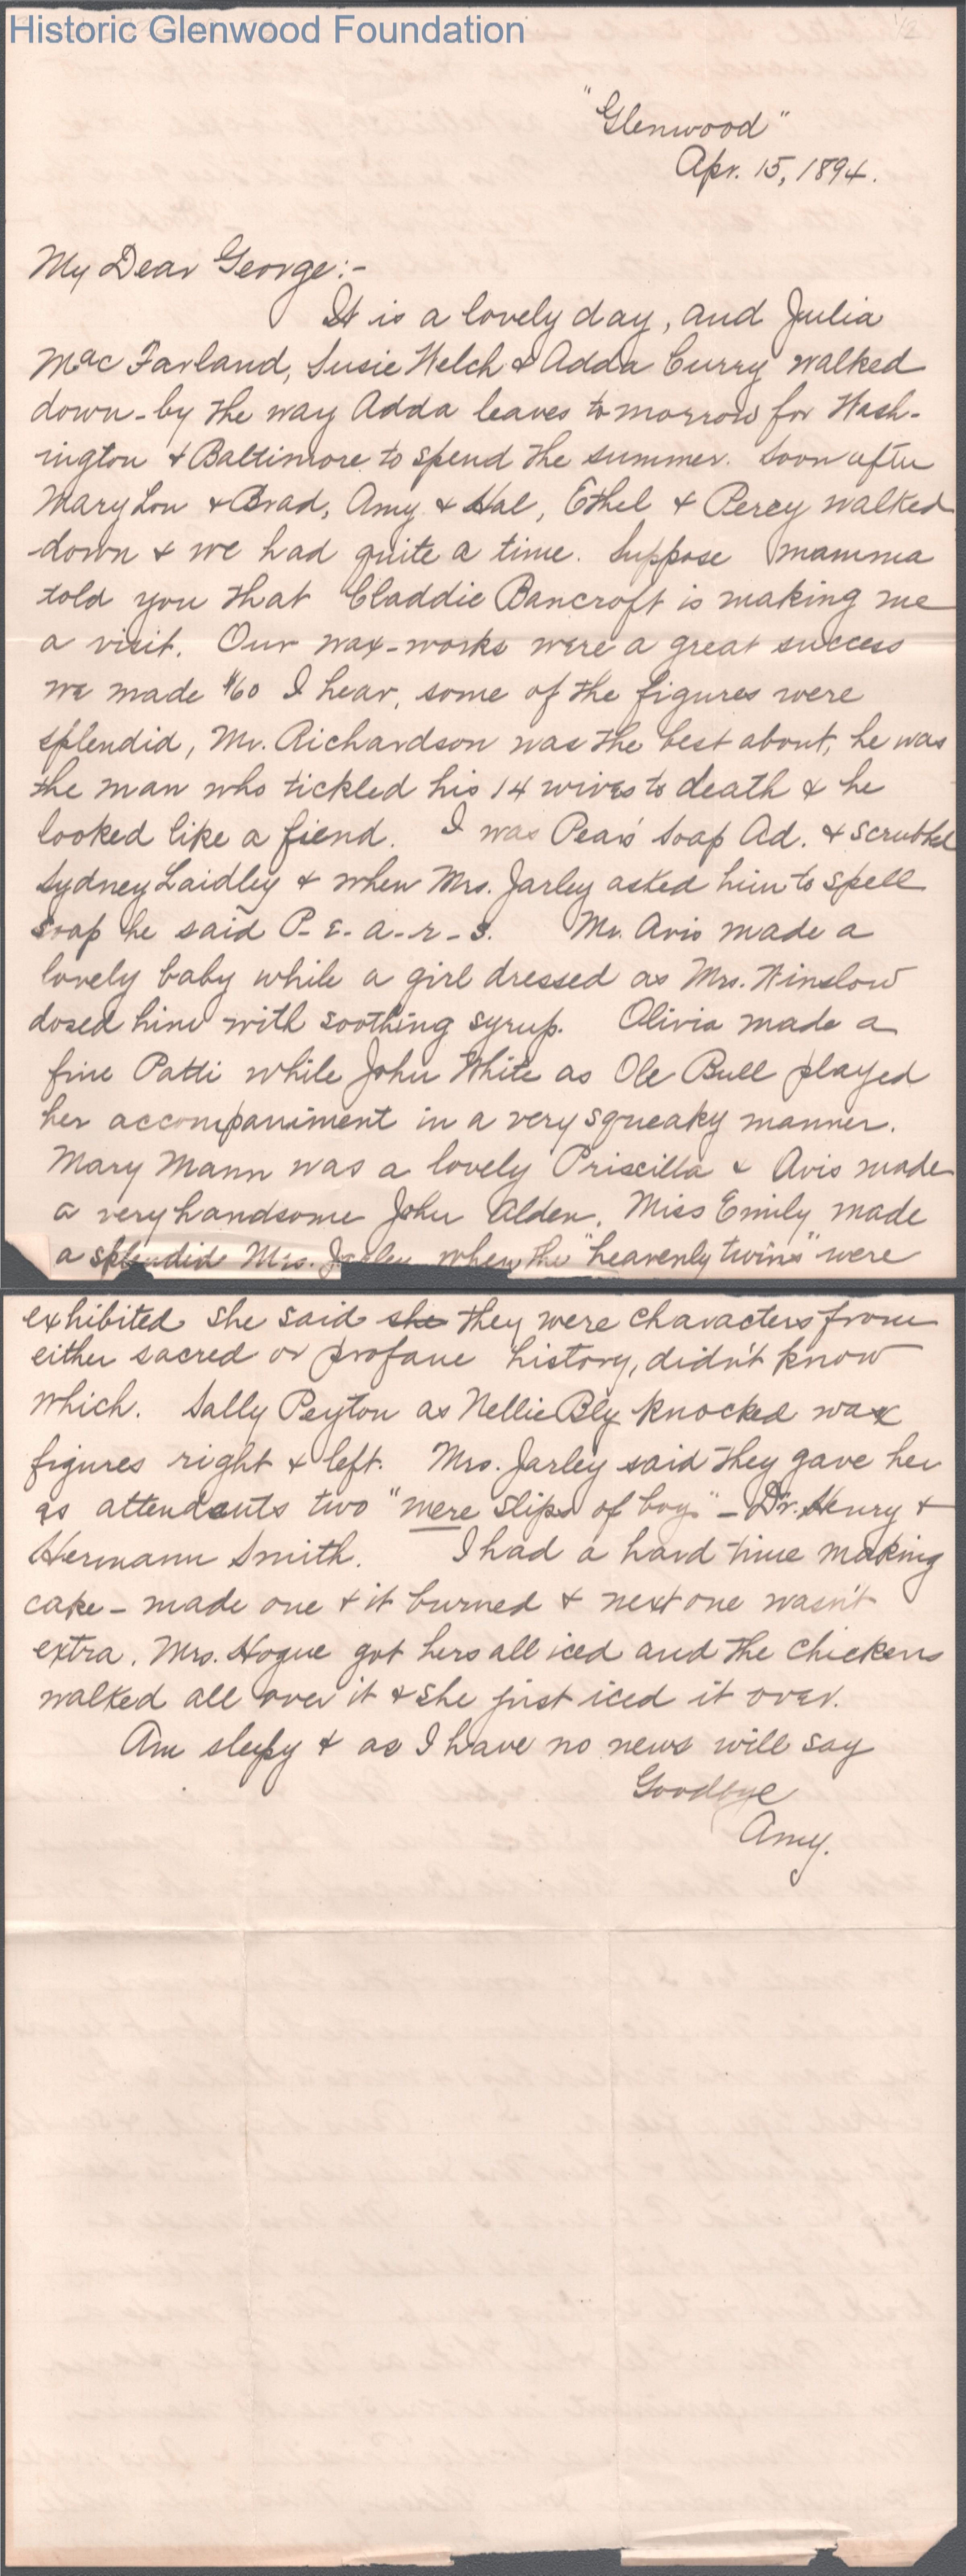 Historic Glenwood Foundation
"Glenwood"
Apr. 15, 1894.
My Dear George:-
It is a lovely day, and Julia
MacFarland, Susie Welch & Adda Curry walked
down - by the way Adda leaves tomorrow for Wash-
ington & Baltimore to spend the summer. Soon after
Mary Lou & Brad, Amy & Hal, Ethel & Percy walked
down & we had quite a time. Suppose mamma
told you that Claddie Bancroft is making me
a visit. Our wax-works were a great success
we made $60 I hear, some of the figures were
splendid, Mr. Richardson was the best about, he was
the man who tickled his 14 wives to death & he
looked like a fiend. I was Pear's Soap Ad. & scrubbed
Sydney Laidley & when Mrs. Jarley asked him to spell
soap he said P-E-a-r-s. Mr. Avis made a
lovely baby while a girl dressed as Mrs. Winslow
dosed him with soothing syrup. Olivia made a
fine Patti while John White as Ole Bull played
her accompaniment in a very squeaky manner.
Mary Mann was a lovely Priscilla & Avis made
a very handsome John Alden. Miss Emily made
a splendid Mrs. Jarley when the "heavenly twins" were
exhibited she said she they were characters from
either sacred or profane history, didn't know
which. Sally Peyton as Nellie Bly knocked wax
figures right & left. Mrs. Jarley said they gave her
as attendants two "mere slips of boys" - Dr. Henry &
Hermann Smith. I had a hard time making
cake - made one & it burned & next one wasn't
extra. Mrs. Hogue got hers all iced and the chickens
walked all over it & she just iced it over.
Am sleepy & as I have no news will say
Goodbye
Amy.